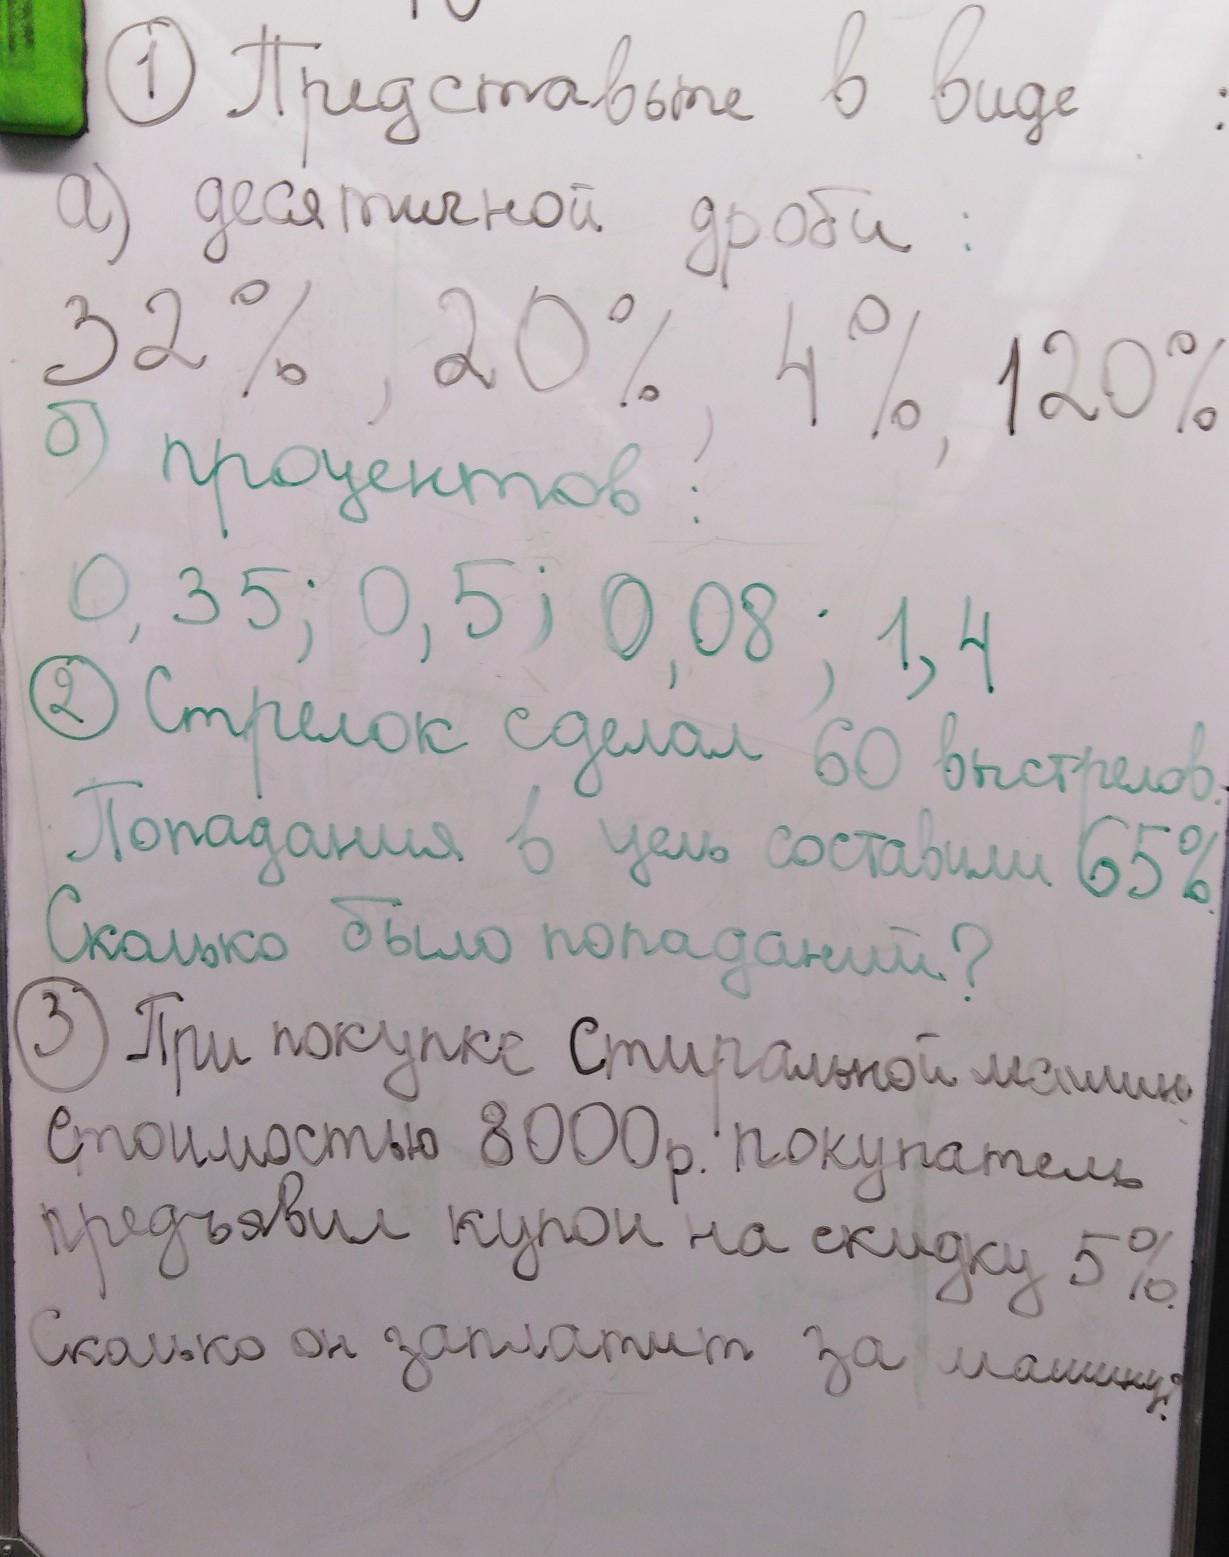 ① Представьте в виде :
а) десятичной дроби :
32%, 20%, 4%, 120%
б) процентов :
0,35; 0,5; 0,08; 1,4
② Стрелок сделал 60 выстрелов.
Попадания в цель составили 65%.
Сколько было попаданий?
③ При покупке стиральной машин
стоимостью 8000р. покупатель
предъявил купон на скидку 5%.
Сколько он заплатит за машину?